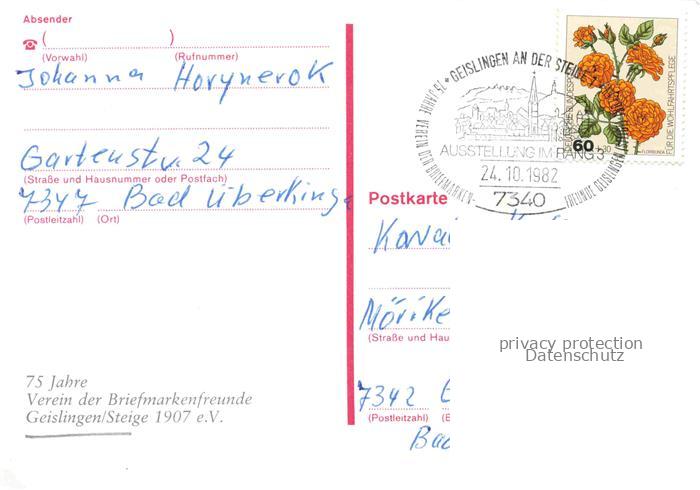 Absender
( )
(Vorwahl) (Rufnummer)
Johanna Horynerok
Gartenstr. 24
(Straße und Hausnummer oder Postfach)
7347 Bad Überking
(Postleitzahl) (Ort)
75 Jahre
Verein der Briefmarkenfreunde
Geislingen/Steige 1907 e.V.
GEISLINGEN AN DER STEIGE
75 JAHRE VEREIN DER BRIEFMARKEN-
FREUNDE GEISLINGEN
AUSSTELLUNG IM RANG 3
24.10.1982
7340
DEUTSCHE BUNDESPOST
60 +30
FLORIBUNDA
FÜR DIE WOHLFAHRTSPFLEGE
Postkarte
Mörike
(Straße und Hau
7342
(Postleitzahl)
Bad
privacy protection
Datenschutz